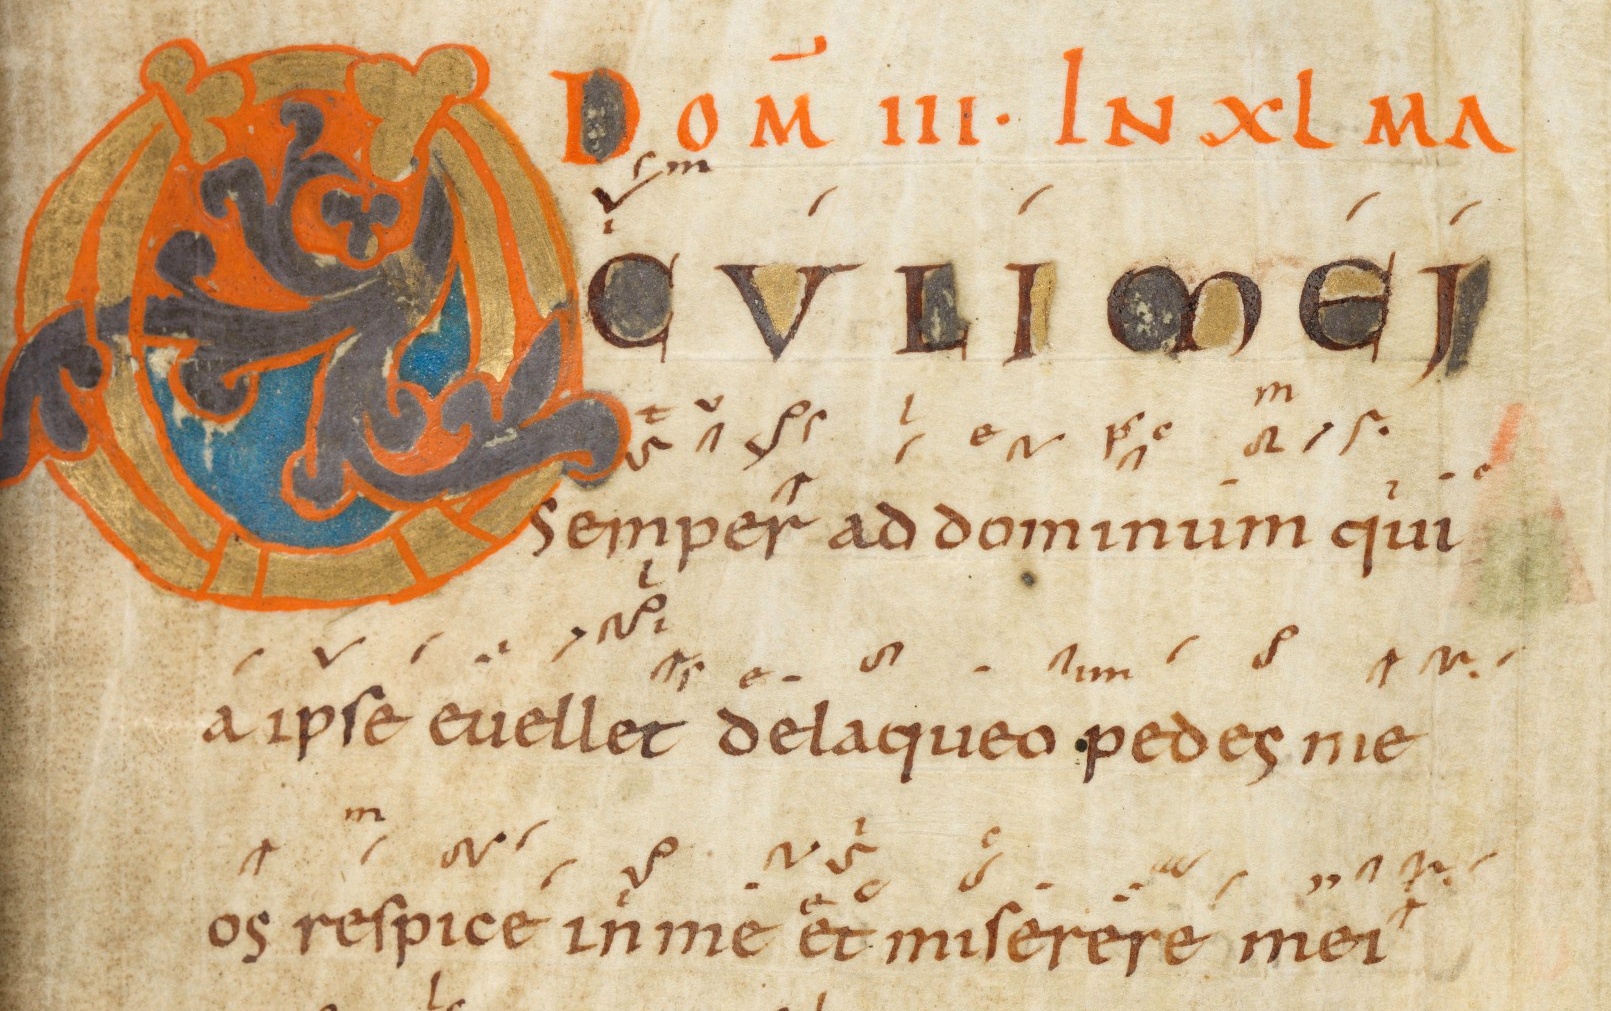 DOM̄ III· IN XL MA
OCULI MEI
semper ad dominum qui
a ipse euellet delaqueo pedes me
os respice in me et miserere mei